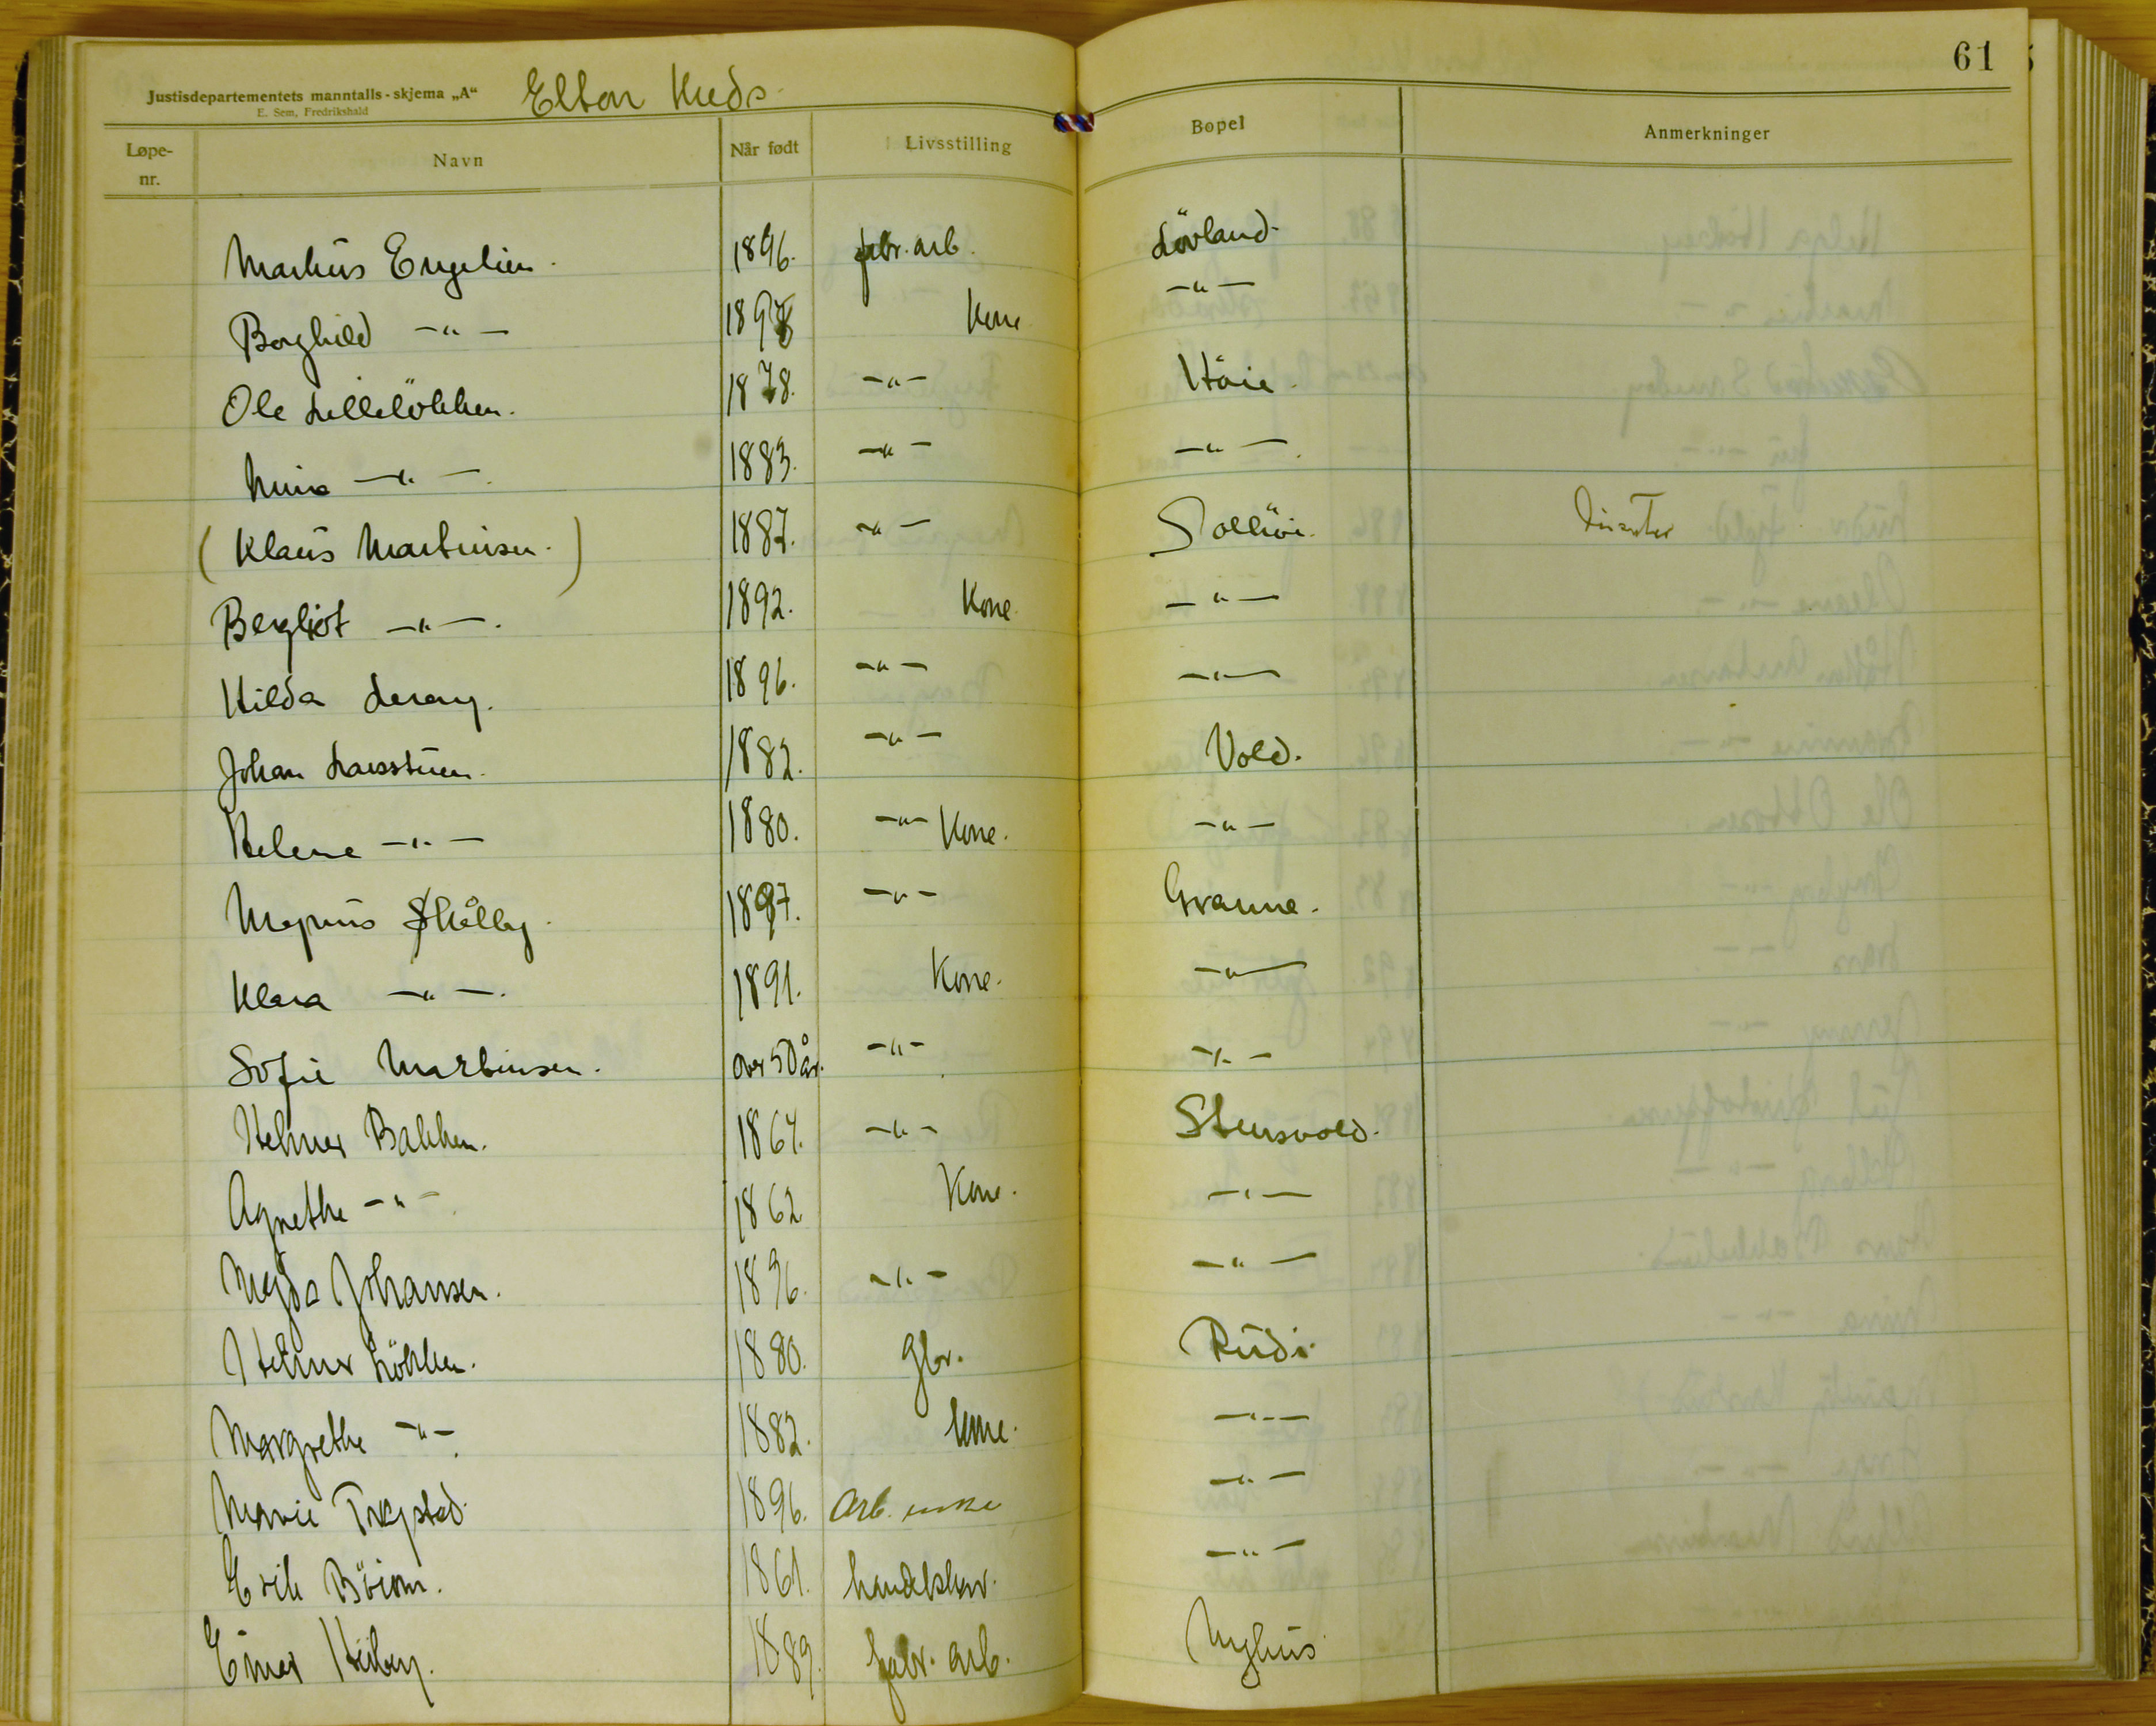 61
Justisdepartementets manntalls-skjema „A“ Elton Kreds
E. Sem, Fredrikshald
Løpe-nr. Navn Når født Livsstilling Bopel Anmerkninger
Markus Engelien. 1896. fabr. arb. Lövland.
Borghild -"- 1898 Kone -"-
Ole Lillelökken. 1878. -"- Höie.
Nina -"-. 1883. -"- -"-.
(Klaus Martinsen.) 1887. -"- Sollöi.
Bergliot -"-. 1892. Kone -"-
Hilda Leray. 1896. -"- -"-
Johan Larsstuen. 1882. -"- Vold.
Helene -"- 1880. -"- Kone. -"-
Magnus Skålby. 1897. -"- Granne.
Klara -"-. 1891. Kone. -"-
Sofie Martinsen. over 50 år. -"- -"-
Helmer Bakken. 1864. -"- Stensvold.
Agnethe -"- 1862 Kone. -"-
Magda Johansen. 1896. -"- -"-
Helmer Lökken. 1880. gbr. Rudi.
Margrethe -"-. 1882. Kone. -"-
Marie Trogstad. 1896. Arb. -"-
Erik Böiom. 1861. handelsbest. -"-
Einar Heiberg. 1889. fabr. arb. Nyhus